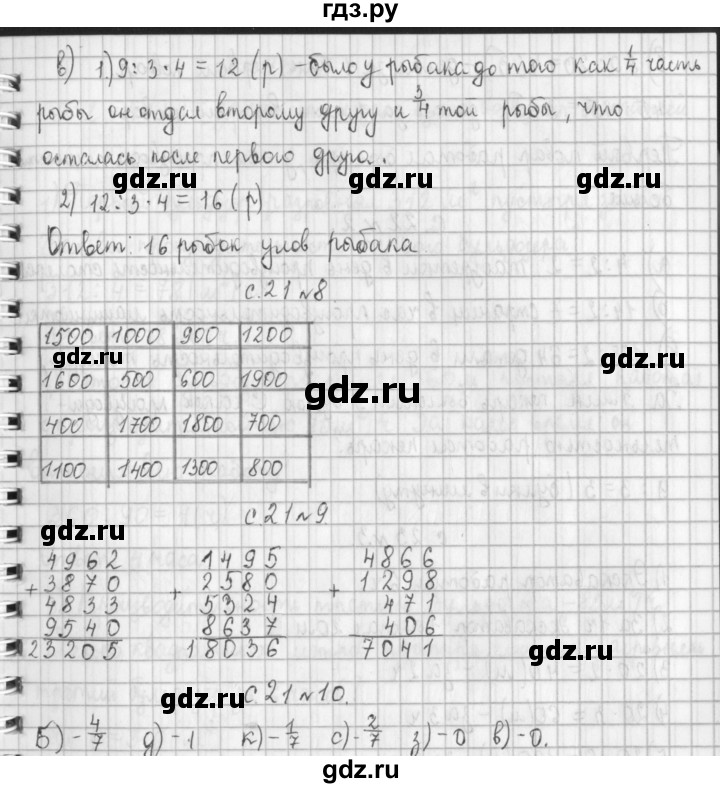 гдз.ру
в) 1) 9 : 3 · 4 = 12 (р) - было у рыбака до того как 1/4 часть
рыбы он отдал второму другу и 3/4 той рыбы, что
осталась после первого друга.
gdz.ru gdz.ru gdz.ru
2) 12 : 3 · 4 = 16 (р)
Ответ: 16 рыбок улов рыбака
с.21 №8
1500 1000 900 1200
gdz.ru gdz.ru
1600 500 600 1900
gdz.ru
400 1700 1800 700
1100 1400 1300 800
с.21 №9
gdz.ru
4962 1495 4866
+ 3870 + 2580 + 1298
4833 5324 471
9540 8637 406
23205 18036 7041
gdz.ru
с 21 №10.
gdz.ru
б) - 4/7 д) - 1 к) - 1/7 с) - 2/7 з) - 0 в) - 0.
gdz.ru